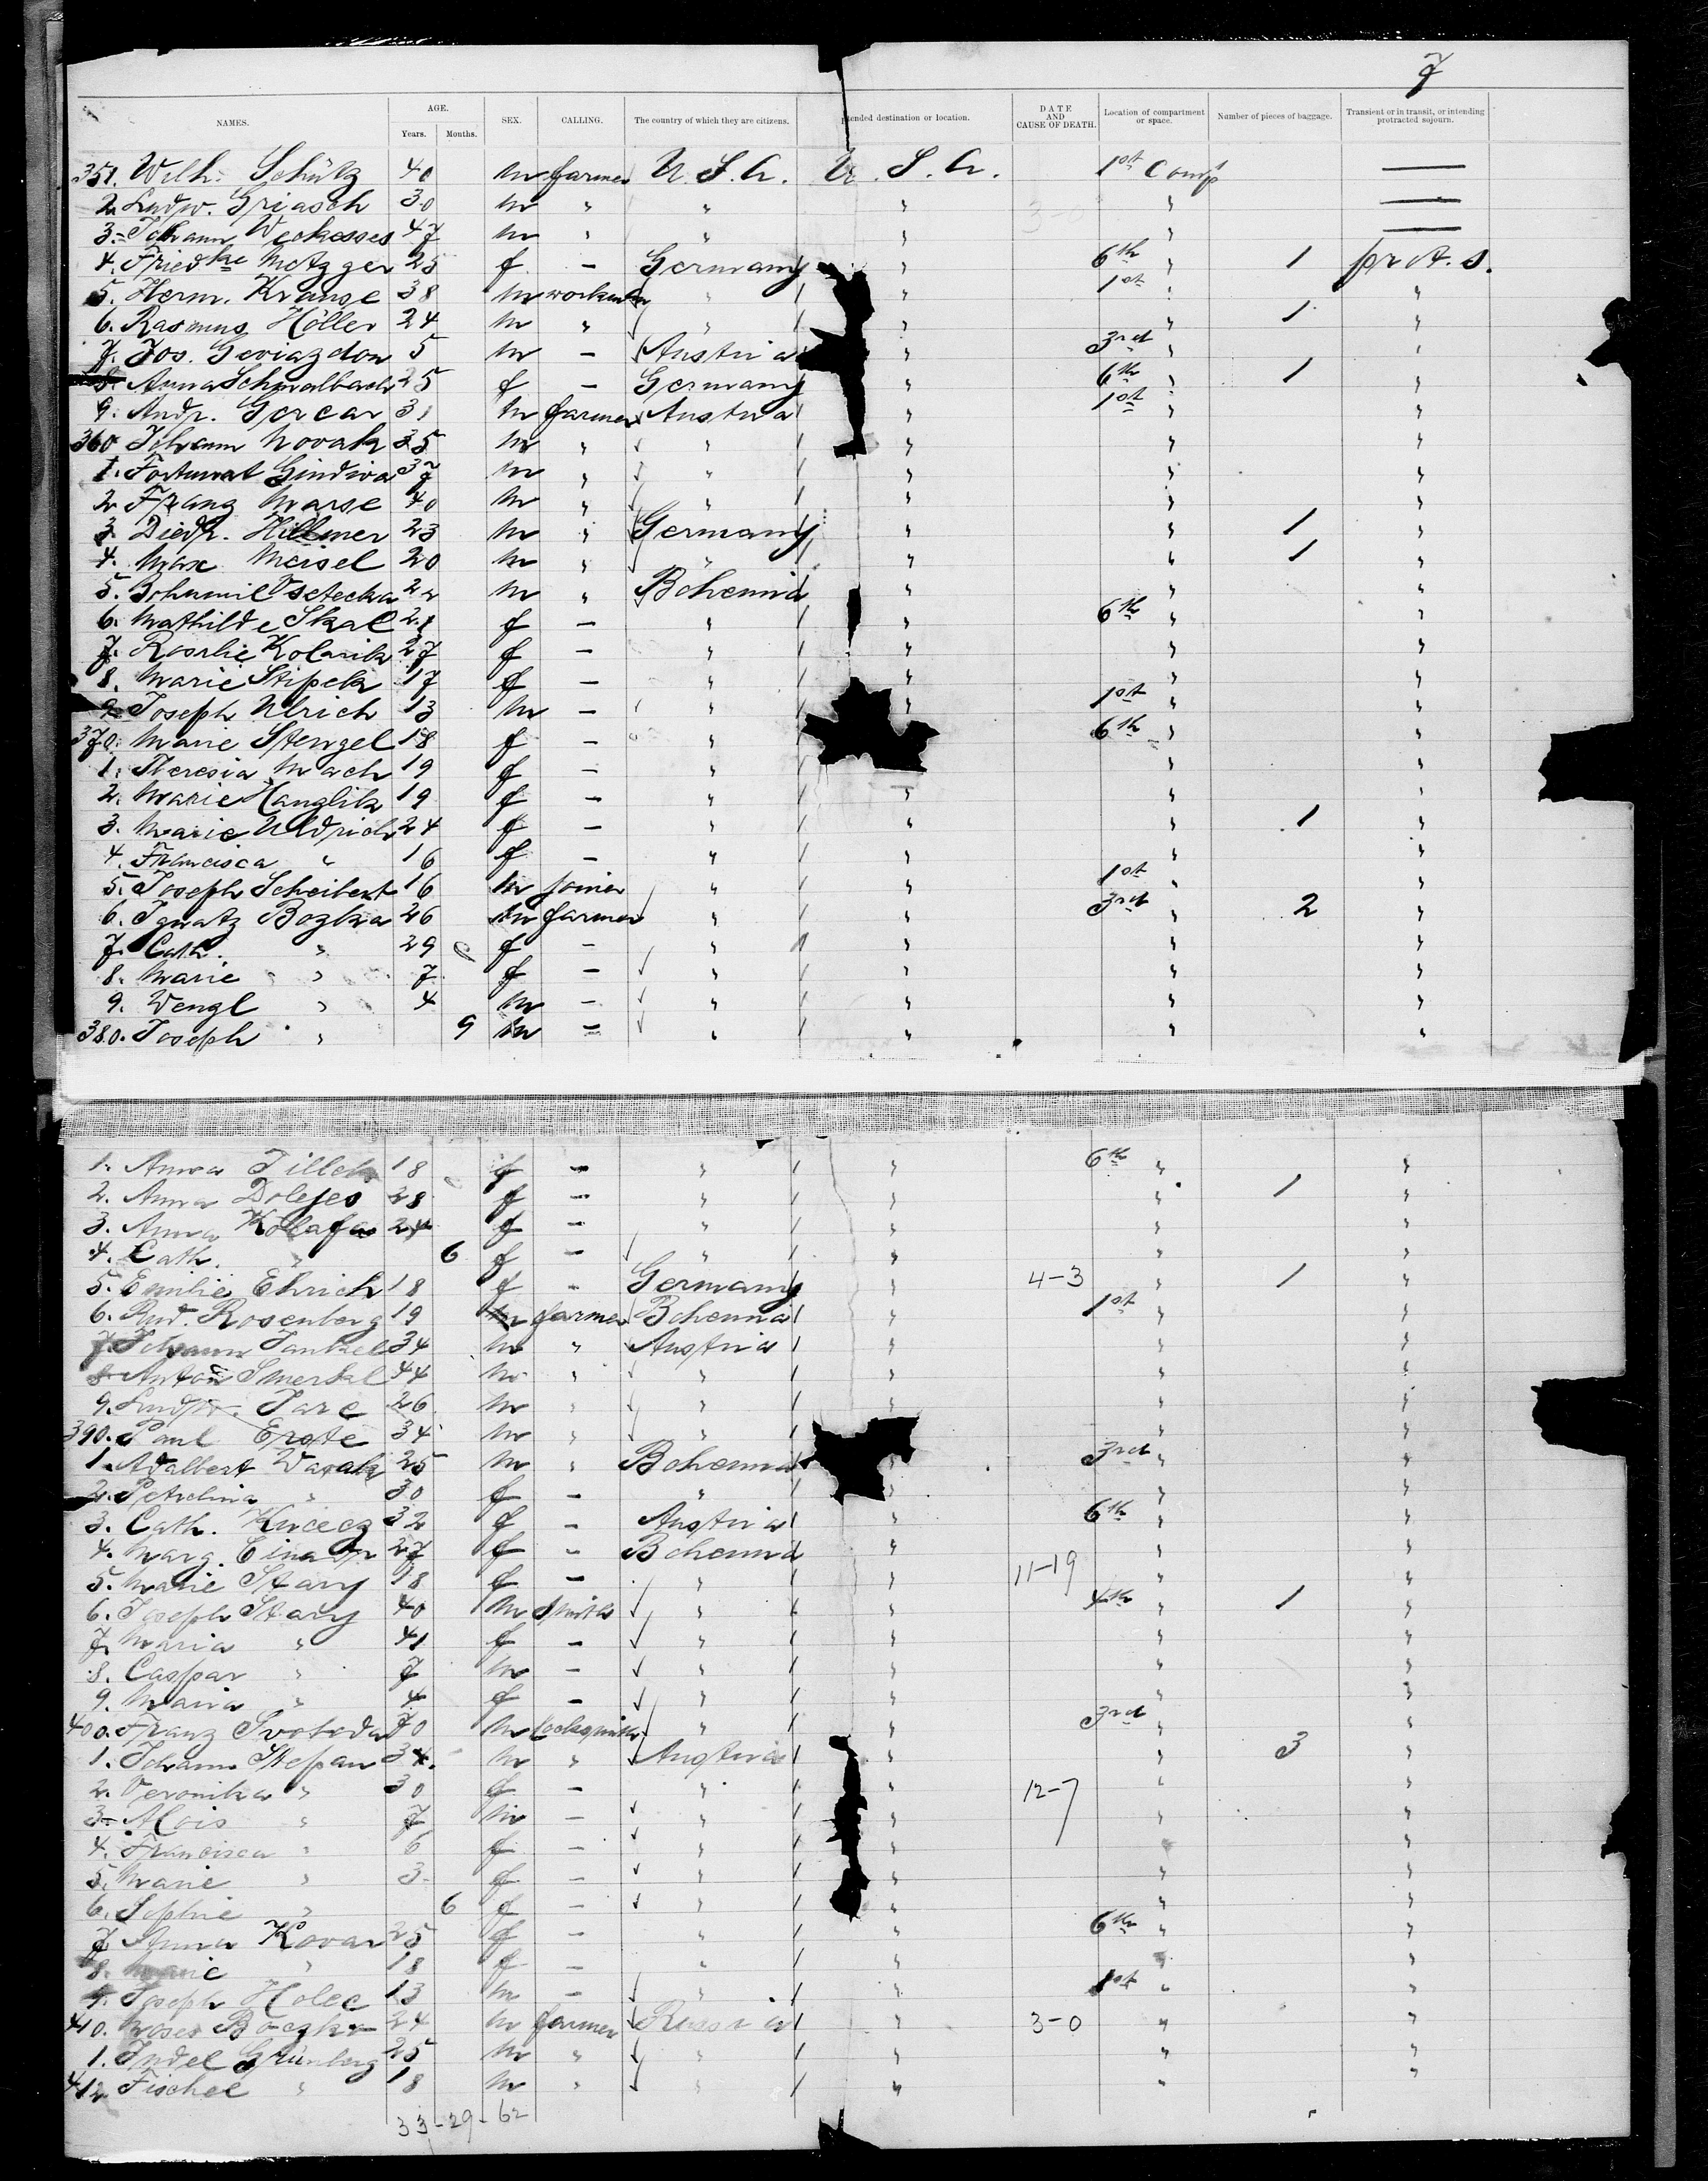 7
NAMES. AGE. Years. Months. SEX. CALLING. The country of which they are citizens. tended destination or location. DATE AND CAUSE OF DEATH. Location of compartment or space. Number of pieces of baggage. Transient or in transit, or intending protracted sojourn.
351. Wilh. Schütz 40 m farmer U.S.A. U.S.A. 1st Comp —
2. Ludw. Griasch 30 m " " " " —
3. Johann Weckesses 47 m " " " " —
4. Friedke Metzger 25 f — Germany " 6th " 1 prot. s.
5. Herm. Krause 38 m workman " " 1st " "
6. Rasmus Höller 24 m " " " " 1 "
7. Jos. Gwiazdon 5 m — Austria " 3rd " "
8. Anna Schmalbach 25 f — Germany " 6th " 1 "
9. Andr. Gercar 31 m farmer Austria " 1st " "
360 Johann Novak 35 m " " " " "
1. Fortunat Gindiva 37 m " " " " "
2 Franz Marse 40 m " " " " "
3. Diedr. Hillmer 23 m " Germany " " 1 "
4. Max Meisel 20 m " " " " 1 "
5. Bohumil Vsetecka m " Bohemia " " "
6. Mathilde Skal 21 f — " " 6th " "
7. Rosalie Kolarik 27 f — " " " "
8. Marie Stipek 17 f — " " " "
9. Joseph Ulrich 13 m — " " 1st " "
370. Marie Stengel 18 f — " " 6th " "
1. Theresia Mach 19 f — " " " "
2. Marie Hanzlik 19 f — " " " "
3. Marie Uldrich 24 f — " " " 1 "
4. Francisca " 16 f — " " " "
5. Joseph Scheibert 16 m joiner " " 1st " "
6. Ignatz Bozka 26 m farmer " " 3rd " 2 "
7. Cath. " 29 f — " " " "
8. Marie " 7 f — " " " "
9. Wenzl " 4 m — " " " "
380. Joseph " 9 m — " " " "
1. Anna Tillek 18 f — " " 6th " "
2. Anna Dolejes 28 f — " " " 1 "
3. Anna Kollafa 24 f — " " " "
4. Cath. " 6 f — " " " "
5. Emilie Ehrich 18 f — Germany " 4-3 " 1 "
6. Rud. Rosenberg 19 m farmer Bohemia " 1st " "
7. Johann Jankel 34 m " Austria " " "
8 Anton Smerkal 44 m " " " " "
9. Ludw. Jare 26 m " " " " "
390. Paul Erste 34 m " " " " "
1. Adalbert Warak 25 m " Bohemia " 3rd " "
2. " 30 f — " " " "
3. Cath. 32 f — Austria " 6th " "
4. Marg. 27 f — Bohemia " " "
5. Marie Stary 18 f — " " 11-19 " "
6. Joseph Stary 40 m Smith " " 4th " 1 "
7. Maria " 41 f — " " " "
8. Caspar " 7 m — " " " "
9. Maria " 4 f — " " " "
400. Franz Svoboda 70 m locksmith " " 3rd " "
1. Johann Stepan 34. m " Austria " " 3 "
2. Veronika " 30 f — " " 12-7 " "
3. Alois " 7 m — " " " "
4. Francisca " 6 f — " " " "
5. Marie " 3 f — " " " "
6. Sophie " 6 f — " " " "
7. Anna Kovar 25 f — " " 6th " "
8. Marie " 18 f — " " " "
9. Joseph Holec 13 m — " " 1st " "
410. Moses Boczko 24 m farmer Russia " 3-0 " "
1. Judel Grünberg 25 m " " " " "
412. Fischel " 18 m " " " " "
33-29-62